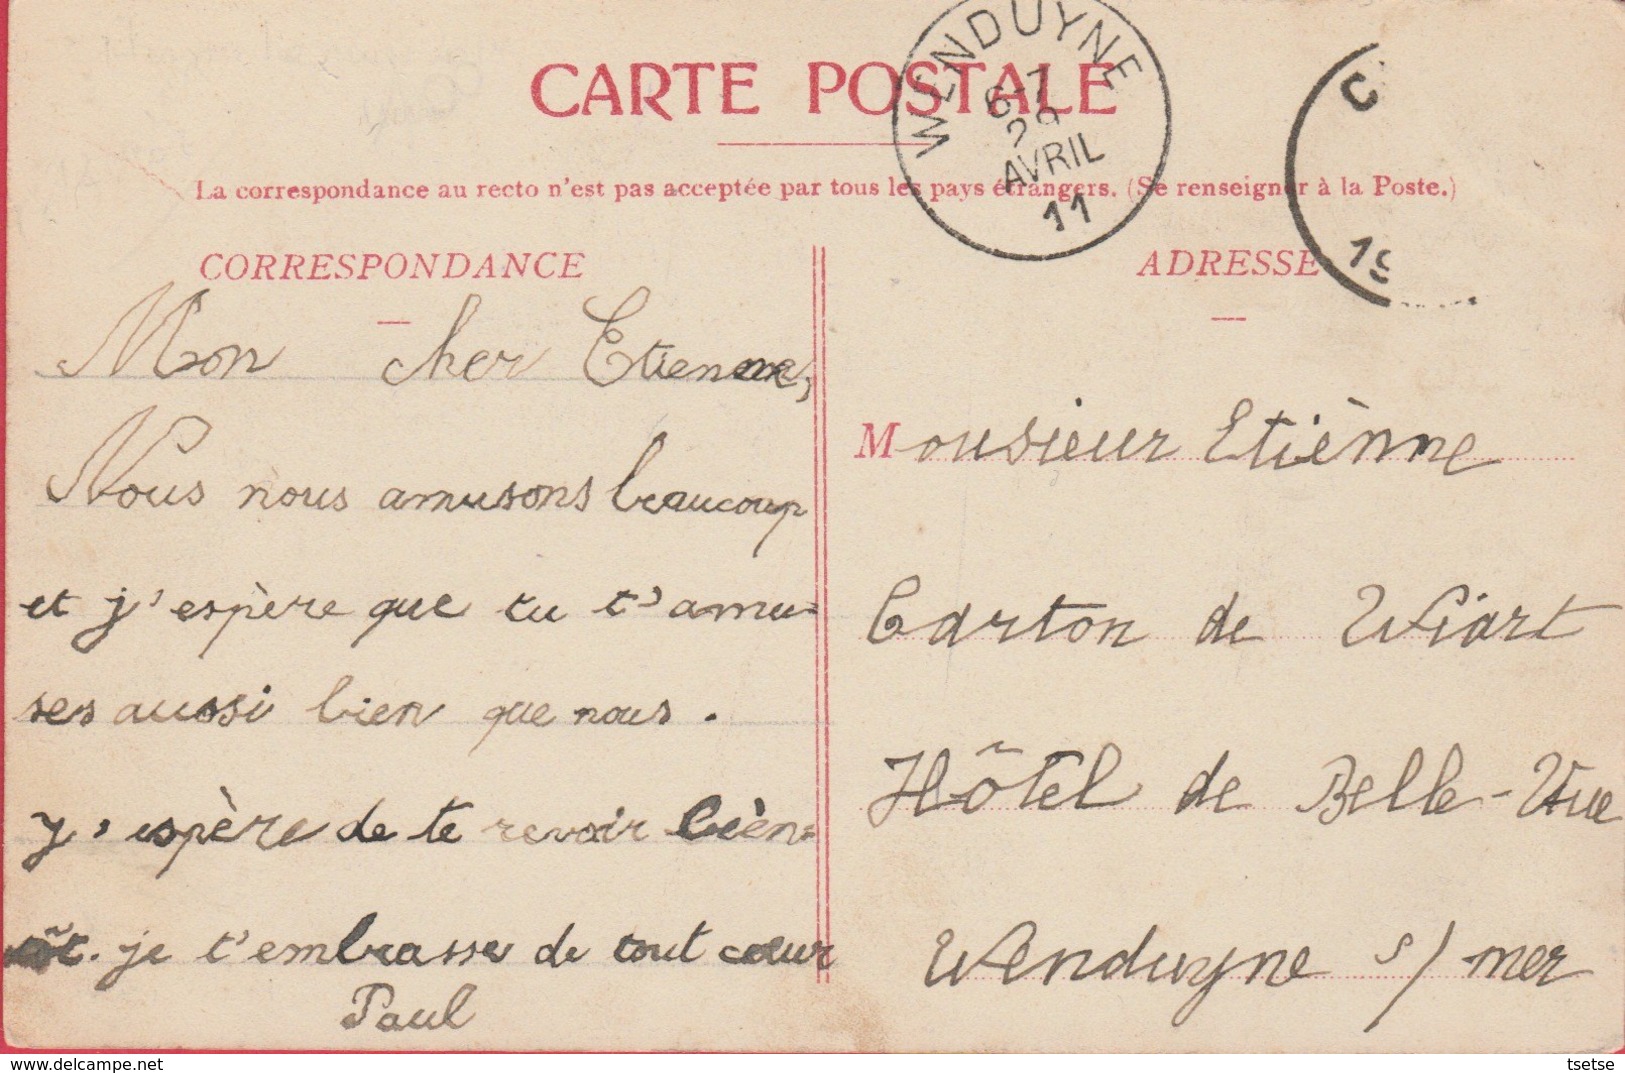 CARTE POSTALE
WENDUYNE
6-7
AVRIL
11
C
19
La correspondance au recto n'est pas acceptée par tous les pays étrangers. (Se renseigner à la Poste.)
CORRESPONDANCE
Mon cher Etienne,
Nous nous amusons beaucoup
et j'espère que tu t'amu-
ses aussi bien que nous.
J'espère de te revoir bièn-
tôt. je t'embrasse de tout cœur
Paul
ADRESSE
Monsieur Etiènne
Carton de Wiart
Hôtel de Belle-Vue
Wenduyne s/mer
tsetse